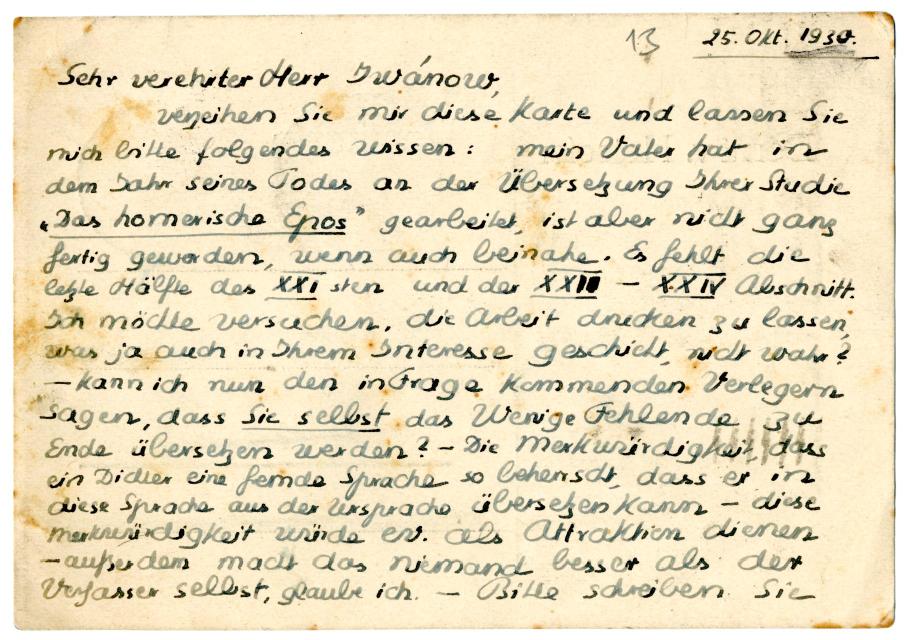 13
25. Okt. 1930.
Sehr verehrter Herr Iwánow,
verzeihen Sie mir diese Karte und lassen Sie
mich bitte folgendes wissen: mein Vater hat in
dem Jahr seines Todes an der Übersetzung Ihrer Studie
„Das homerische Epos" gearbeitet, ist aber nicht ganz
fertig geworden, wenn auch beinahe. Es fehlt die
letzte Hälfte des XXI sten und der XXII – XXIV Abschnitt.
Ich möchte versuchen, die Arbeit drucken zu lassen,
was ja auch in Ihrem Interesse geschieht, nicht wahr?
– Kann ich nun den in Frage kommenden Verlegern
sagen, dass Sie selbst das Wenige Fehlende zu
Ende übersetzen werden? – Die Merkwürdigkeit, dass
ein Dichter eine fremde Sprache so beherrscht, dass er in
diese Sprache aus der Ursprache übersetzen kann – diese
Merkwürdigkeit würde ev. als Attraktion dienen
– außerdem macht das niemand besser als der
Verfasser selbst, glaube ich. – Bitte schreiben Sie